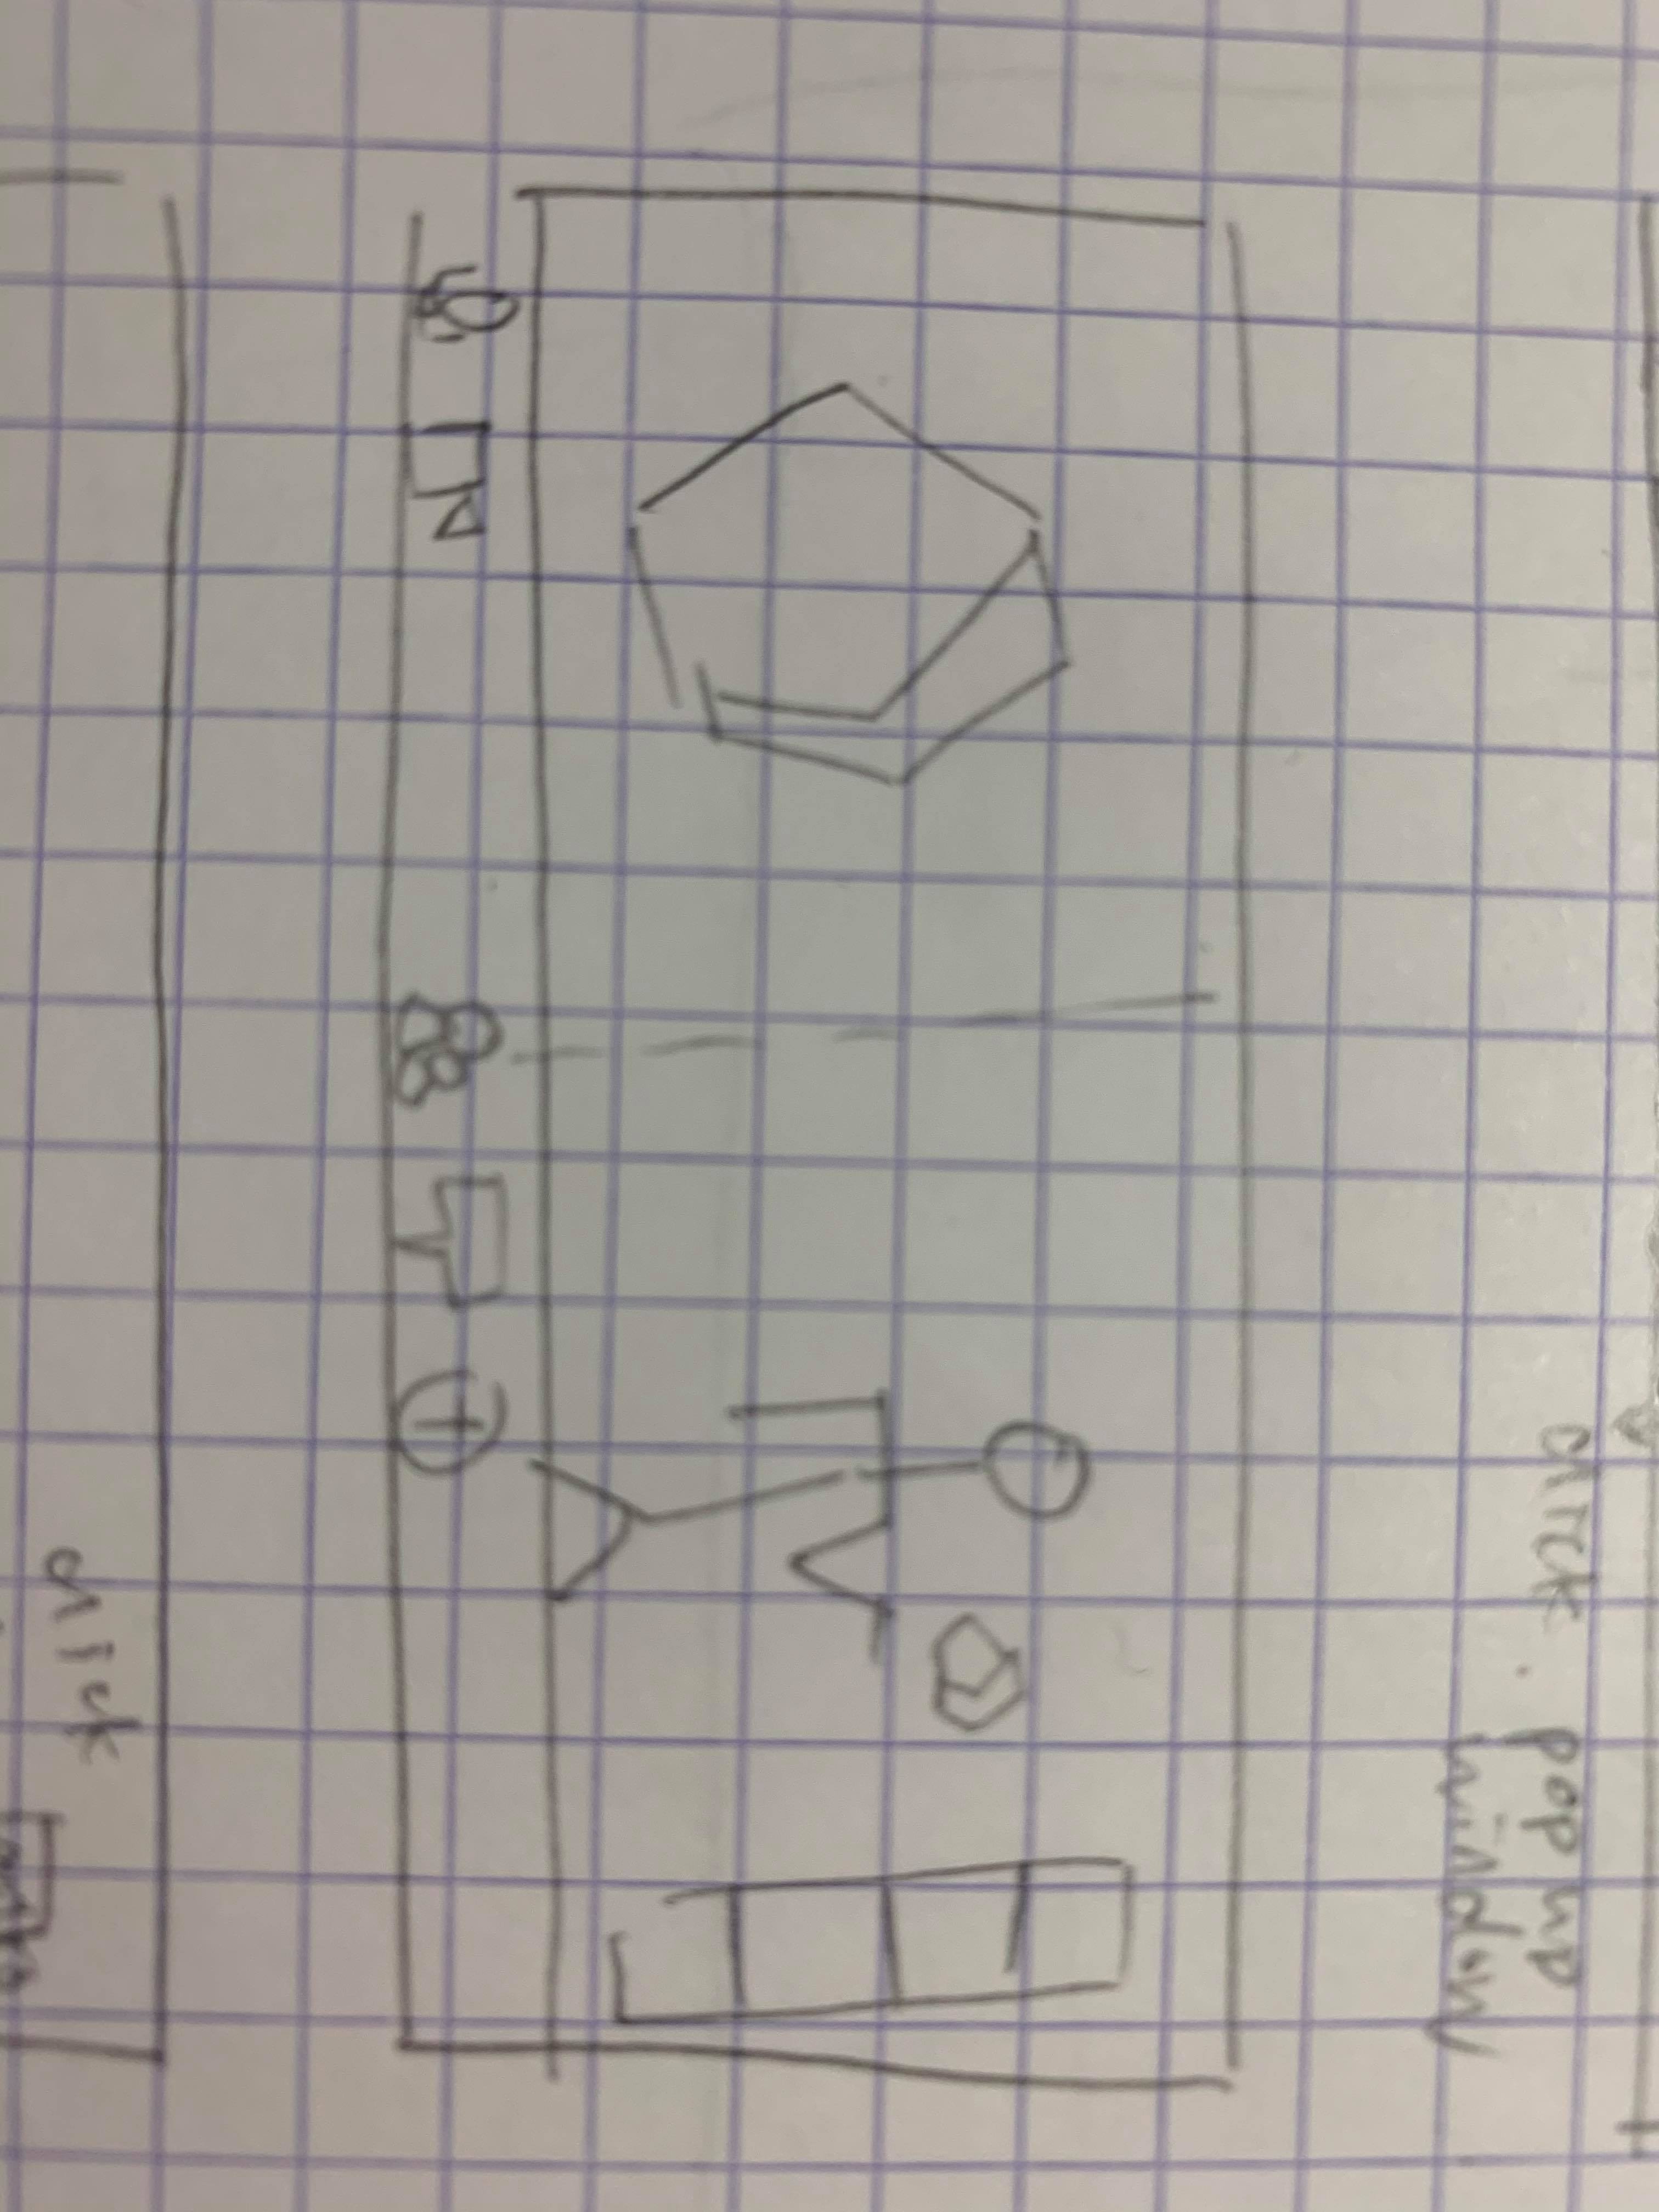 click . pop up
window
click